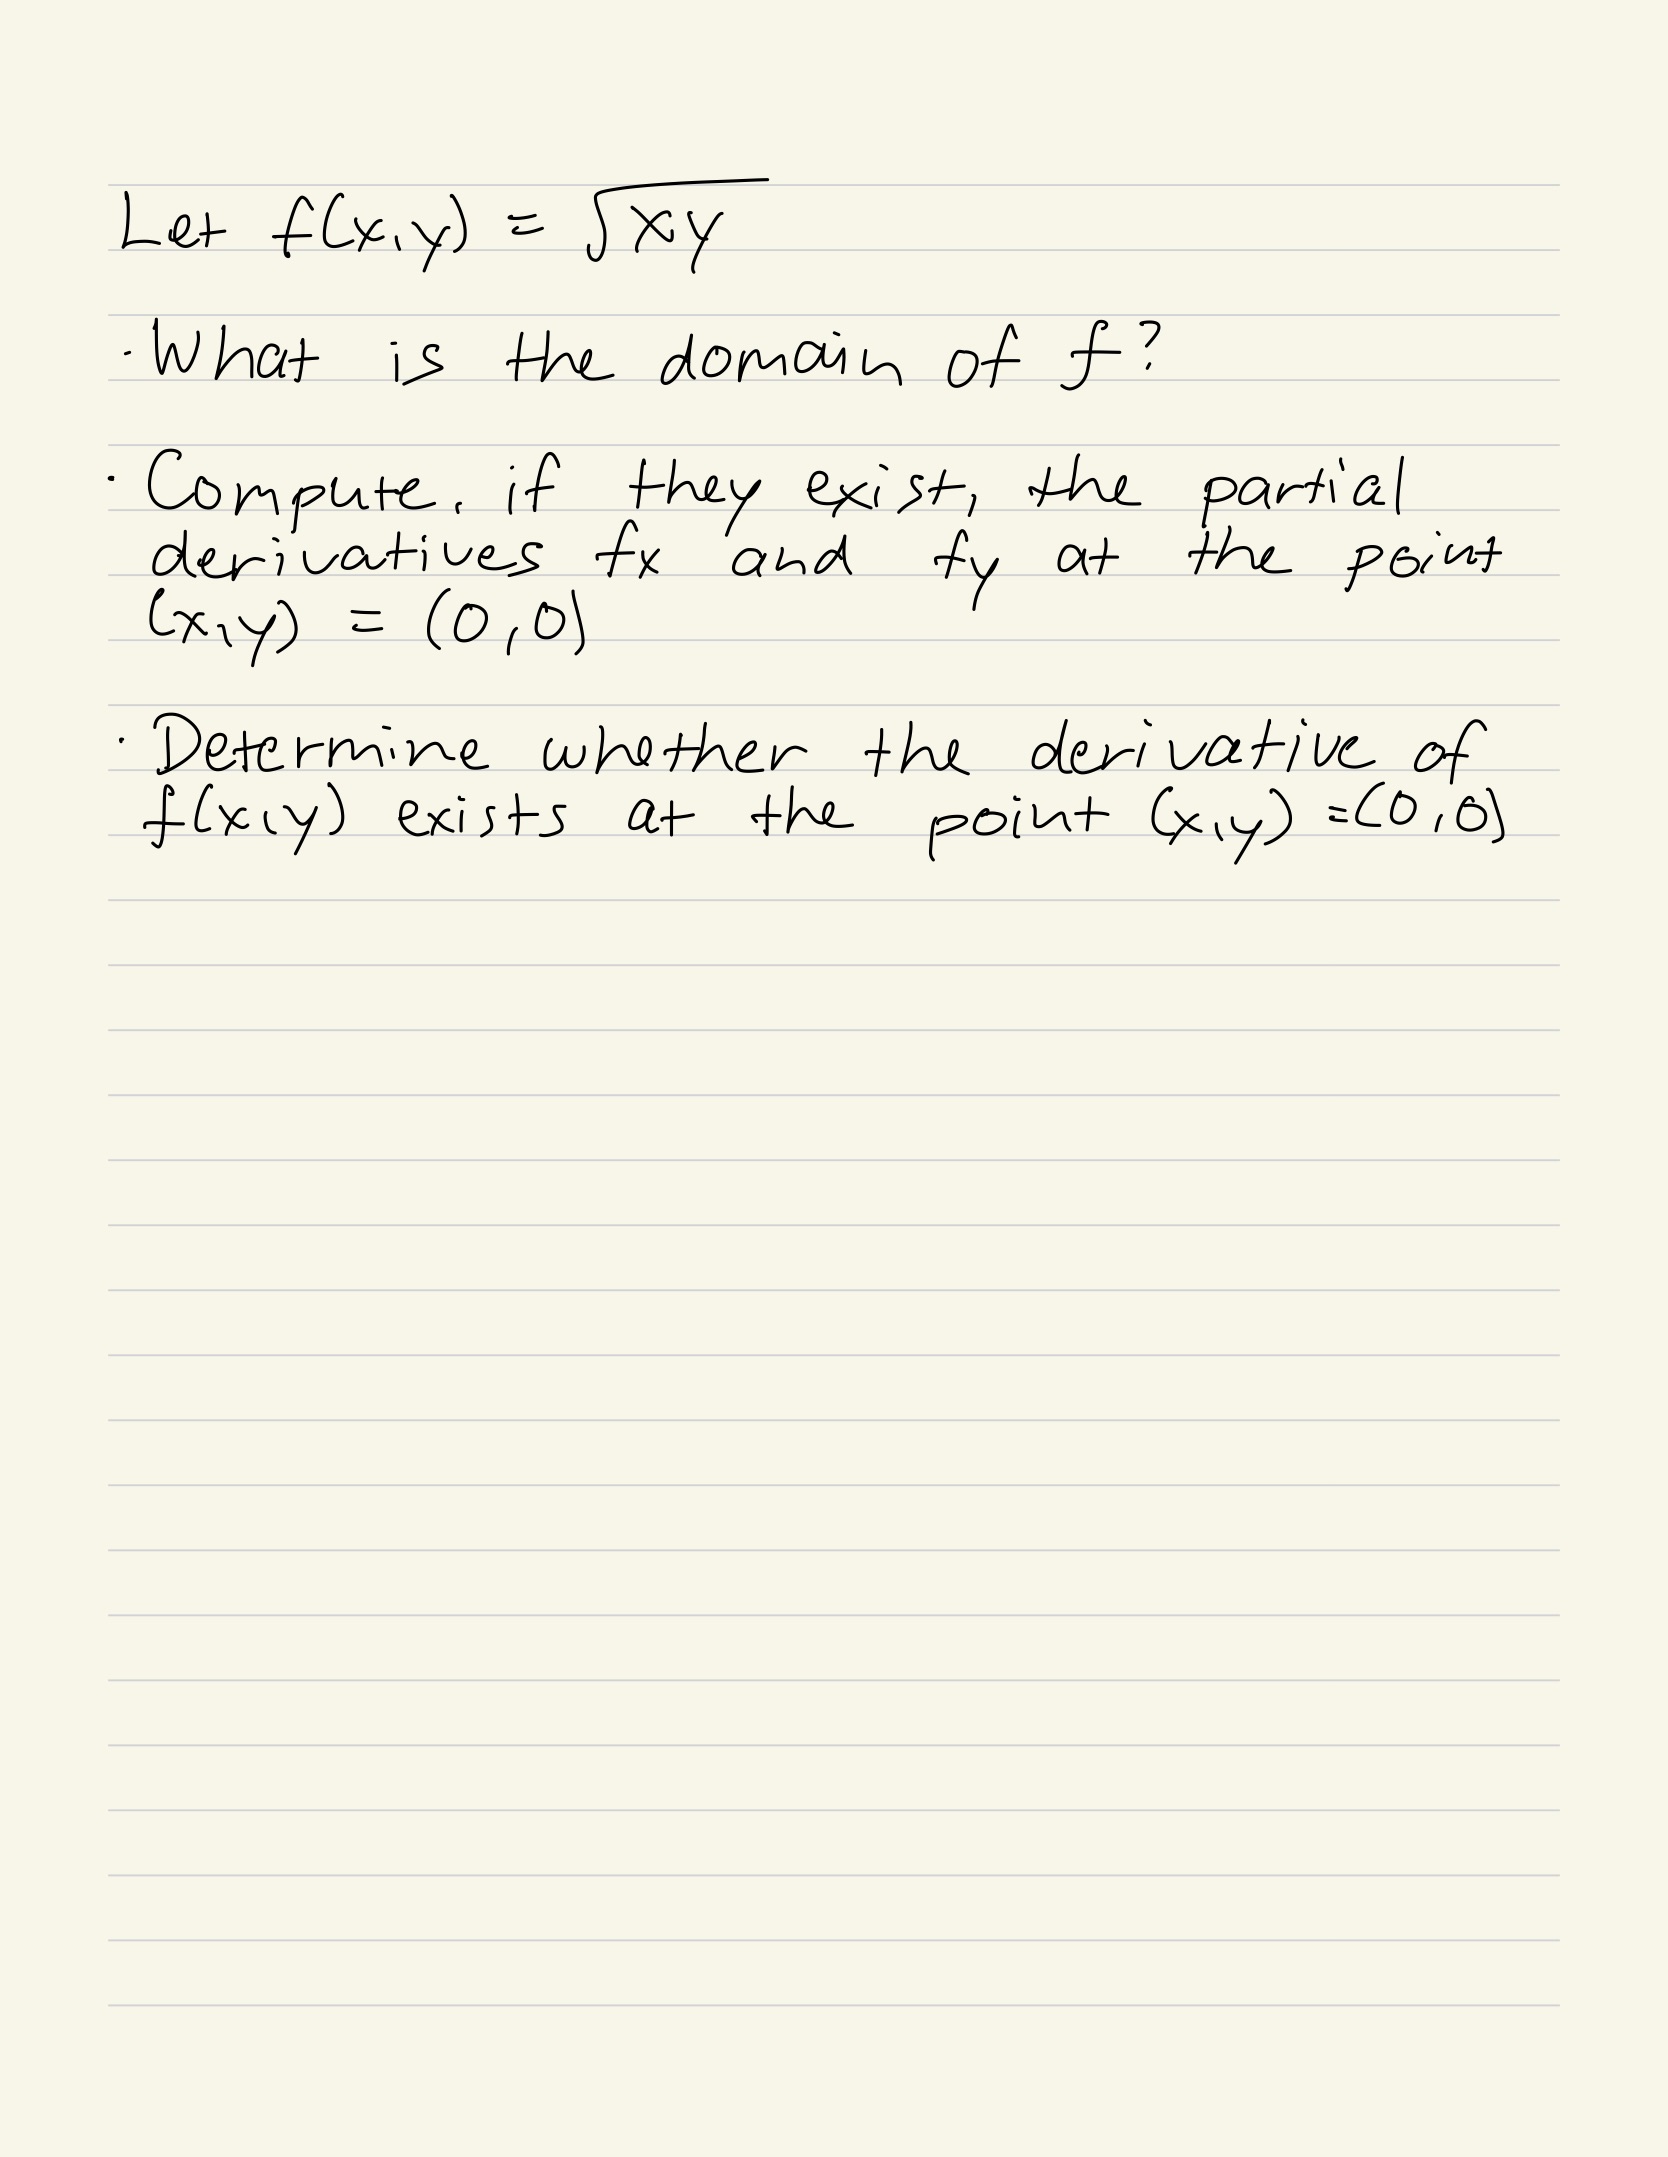 Let f(x,y) = √xy
· What is the domain of f?
· Compute, if they exist, the partial
derivatives fx and fy at the point
(x,y) = (0,0)
· Determine whether the derivative of
f(x,y) exists at the point (x,y) = (0,0)